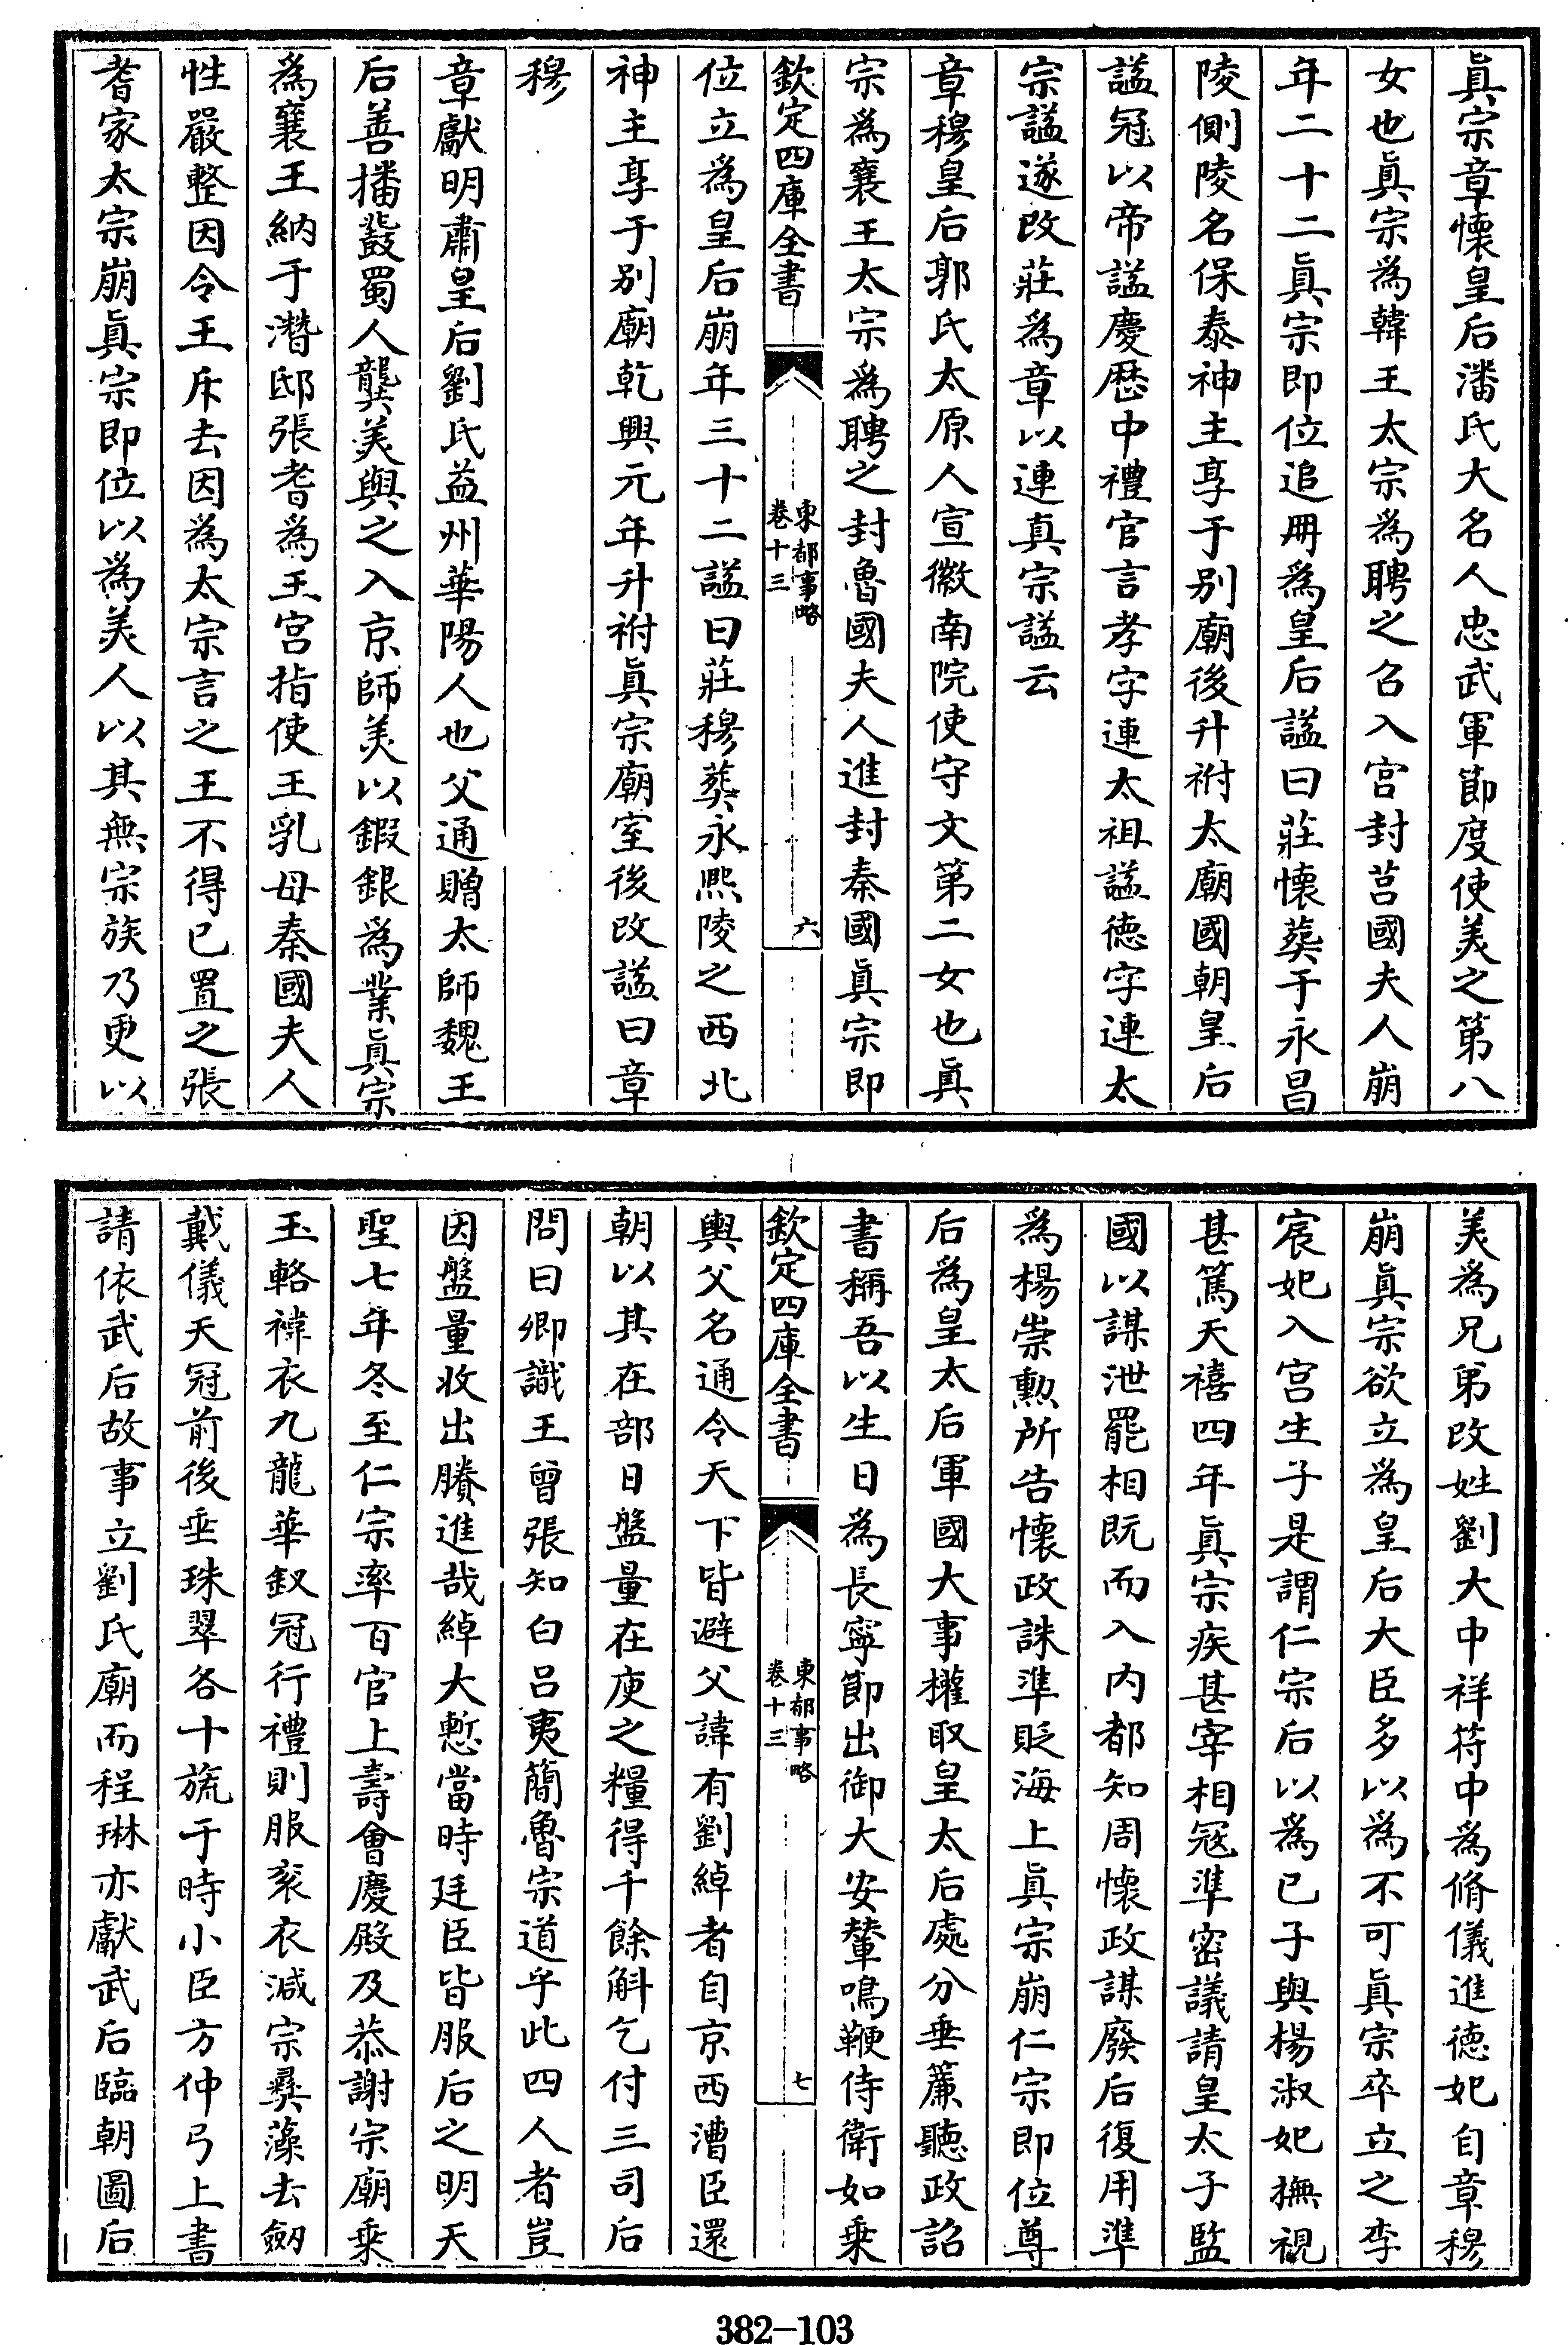 眞宗章懷皇后潘氏大名人忠武軍節度使美之第八
女也眞宗為韓王太宗為聘之召入宫封莒國夫人崩
年二十二眞宗即位追冊為皇后諡曰莊懷葬于永昌
陵側陵名保泰神主享于别廟後升祔太廟國朝皇后
諡冠以帝諡慶歷中禮官言孝字連太祖諡德字連太
宗諡遂改莊為章以連真宗諡云
章穆皇后郭氏太原人宣徽南院使守文第二女也眞
宗為襄王太宗為聘之封魯國夫人進封秦國眞宗即
欽定四庫全書
東都事略
卷十三
六
位立為皇后崩年三十二諡曰莊穆葬永熙陵之西北
神主享于别廟乾興元年升祔眞宗廟室後改諡曰章
穆
章獻明肅皇后劉氏益州華陽人也父通贈太師魏王
后善播鼗蜀人龔美與之入京師美以鍜銀為業眞宗
為襄王納于潛邸張耆為王宫指使王乳母秦國夫人
性嚴整因令王斥去因為太宗言之王不得已置之張
耆家太宗崩眞宗即位以為美人以其無宗族乃更以
美為兄弟改姓劉大中祥符中為脩儀進德妃自章穆
崩眞宗欲立為皇后大臣多以為不可眞宗卒立之李
宸妃入宫生子是謂仁宗后以為已子與楊淑妃撫視
甚篤天禧四年眞宗疾甚宰相冦準密議請皇太子監
國以謀泄罷相既而入内都知周懷政謀廢后復用準
為楊崇勲所告懷政誅準貶海上眞宗崩仁宗即位尊
后為皇太后軍國大事權取皇太后處分垂簾聽政詔
書稱吾以生日為長寧節出御大安輦鳴鞭侍衛如乗
欽定四庫全書
東都事略
卷十三
七
輿父名通令天下皆避父諱有劉綽者自京西漕臣還
朝以其在部日盤量在庾之糧得千餘斛乞付三司后
問曰卿識王曾張知白吕夷簡魯宗道乎此四人者豈
因盤量收出賸進哉綽大慙當時廷臣皆服后之明天
聖七年冬至仁宗率百官上壽會慶殿及恭謝宗廟乗
玉輅褘衣九龍華釵冠行禮則服衮衣減宗彞藻去劒
戴儀天冠前後垂珠翠各十旒于時小臣方仲弓上書
請依武后故事立劉氏廟而程琳亦獻武后臨朝圖后
382-103